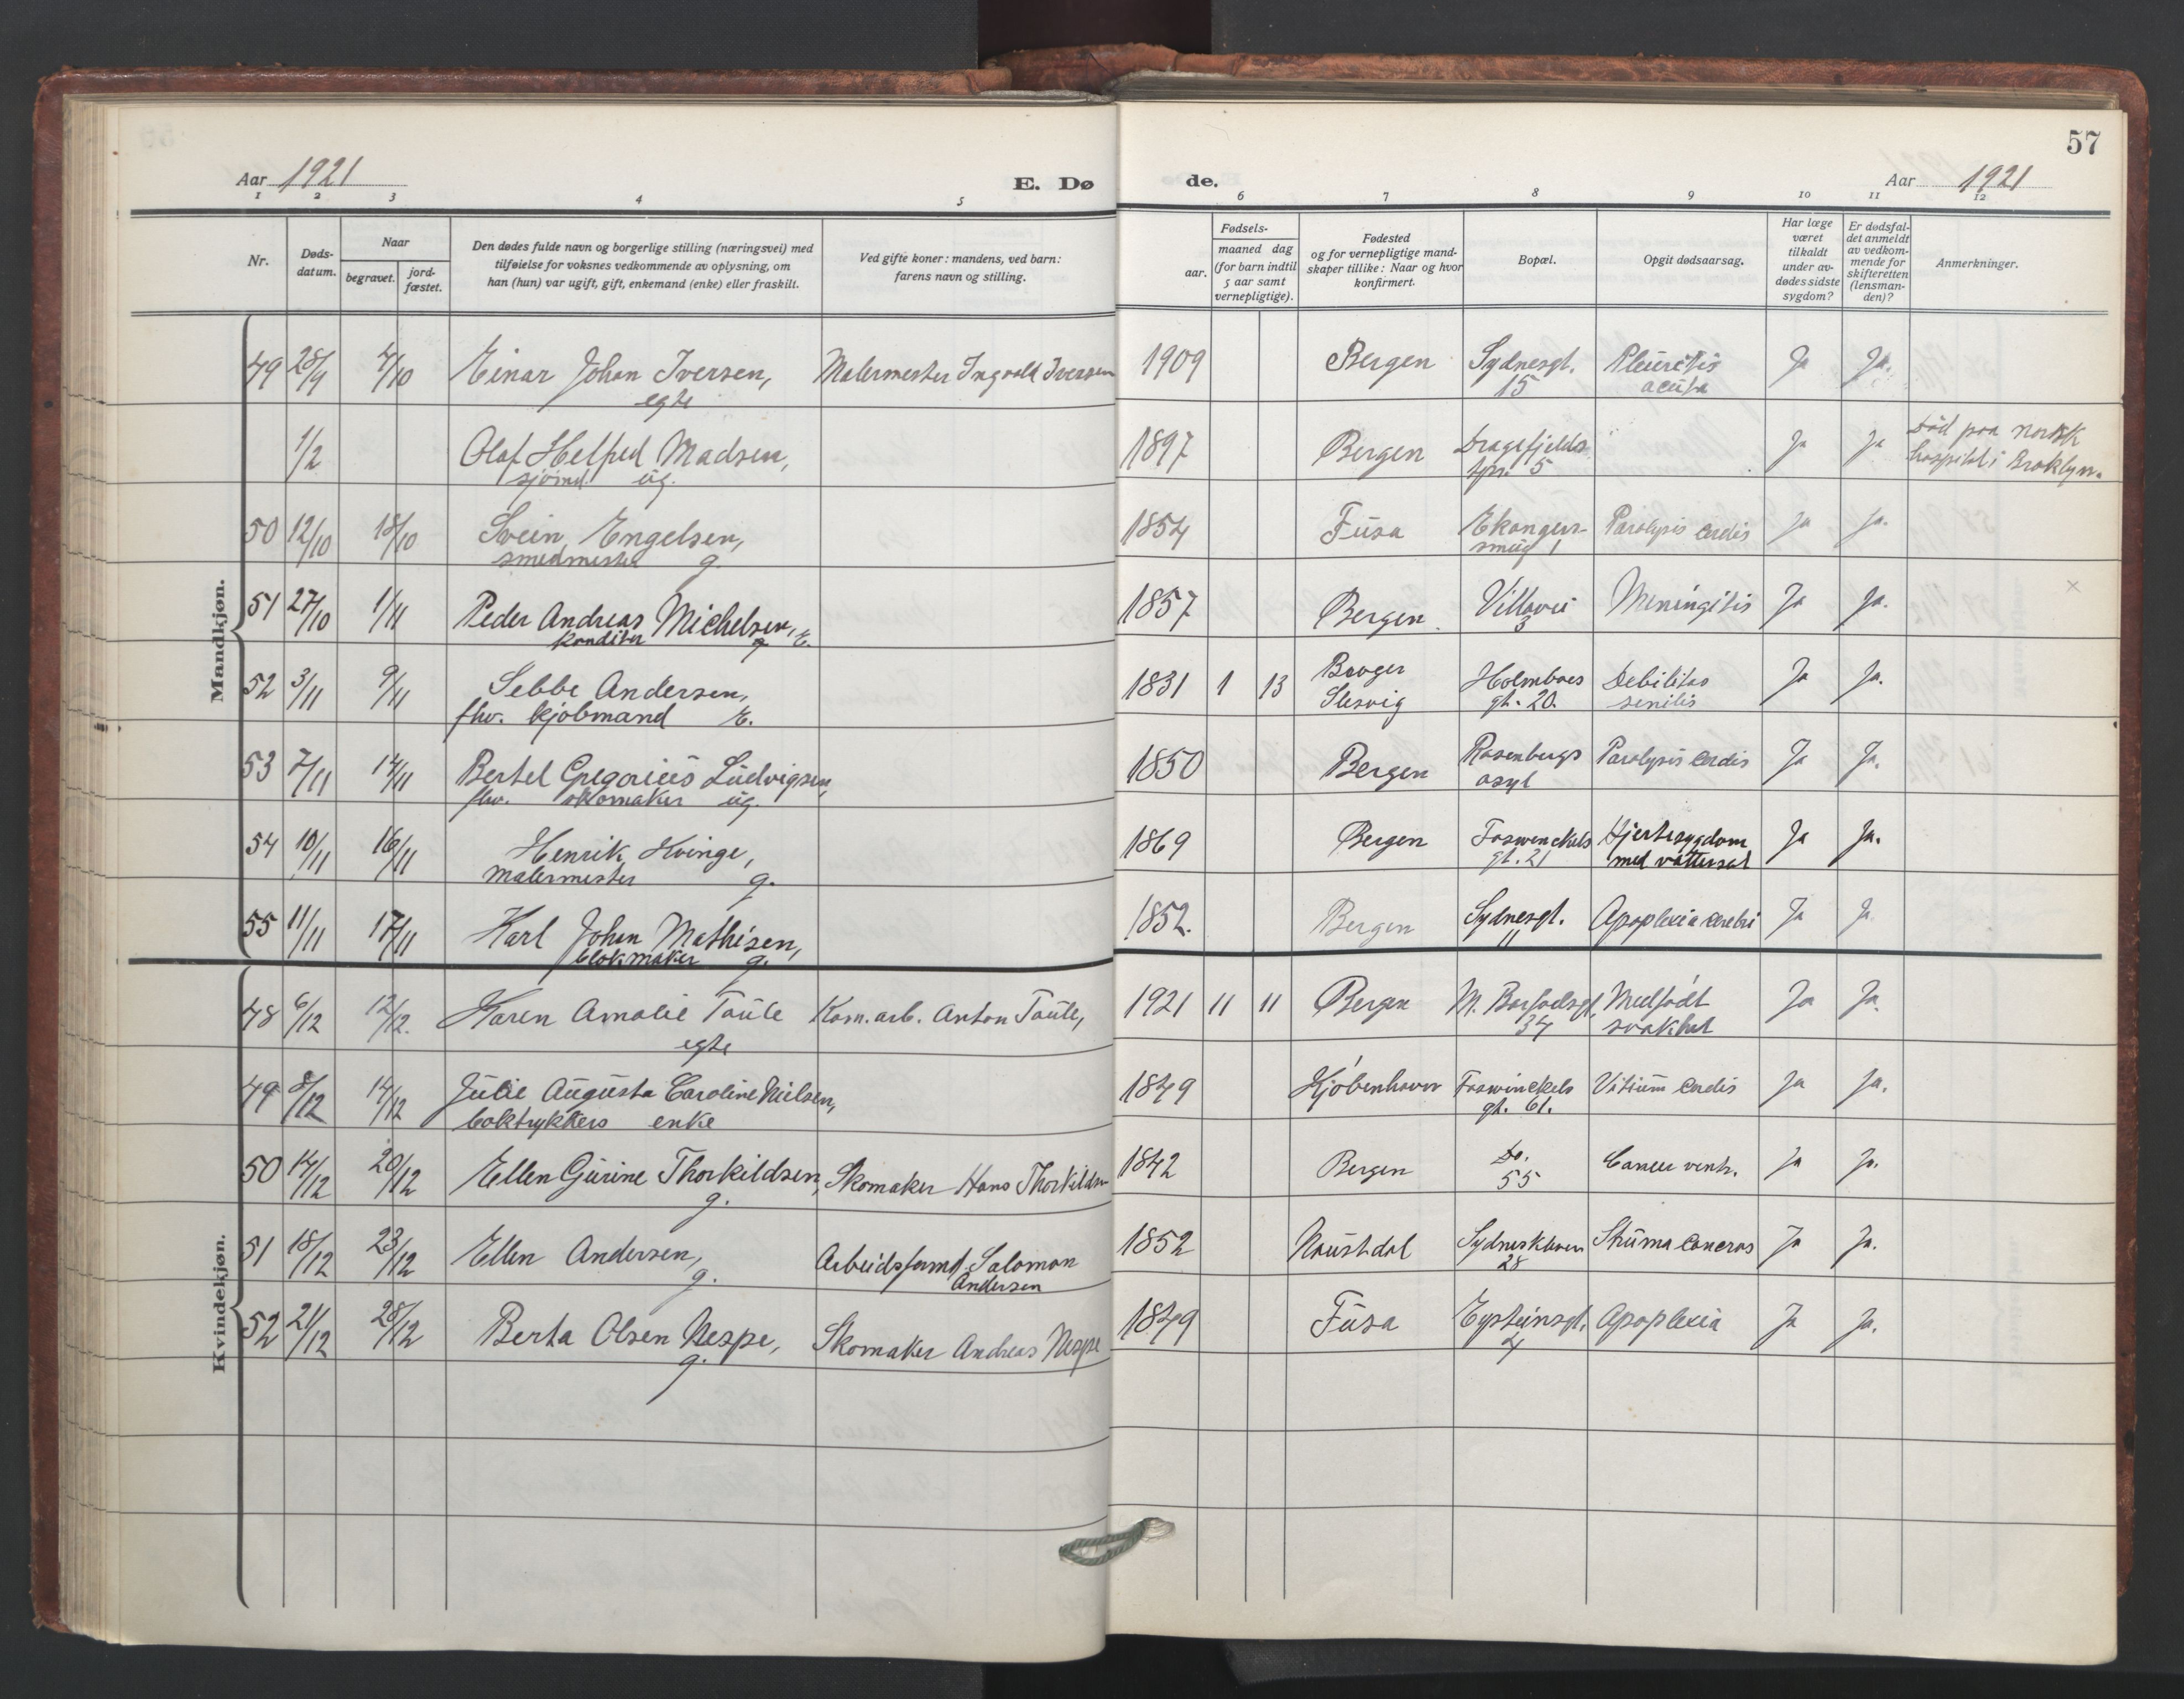 57
Aar 1921 E. Dø de. Aar 1921
1 2 3 4 5 6 7 8 9 10 11 12
Nr.
Døds-
datum.
Naar
begravet.
jord-
fæstet.
Den dødes fulde navn og borgerlige stilling (næringsvei) med
tilføielse for voksnes vedkommende av oplysning, om
han (hun) var ugift, gift, enkemand (enke) eller fraskilt.
Ved gifte koner: mandens, ved barn:
farens navn og stilling.
Fødsels-
aar.
maaned dag
(for barn indtil
5 aar samt
vernepligtige).
Fødested
og for vernepligtige mand-
skaper tillike: Naar og hvor
konfirmert.
Bopæl.
Opgit dødsaarsag.
Har læge
været
tilkaldt
under av-
dødes sidste
sygdom?
Er dødsfal-
det anmeldt
av vedkom-
mende for
skifteretten
(lensman-
den)?
Anmerkninger.
Mandkjøn.
49 28/9 4/10 Einar Johan Iversen, Malermester Ingvald Iversen 1909 Bergen Sydnesgt. Pleuritis Ja Ja.
egte 15 acuta
1/2 Olaf Helfred Madsen, 1897 Bergen Dragefjelds Ja Ja Död paa norsk
sjömd. ug. 5 hospital i Broklyn.
50 12/10 18/10 Svein Engelsen, 1854 Fusa Ekanger- Paralysis cordis Ja Ja.
smedmester g. smug 1
51 27/10 1/11 Peder Andreas Michelsen, 1857 Bergen Villavei Meningitis Ja Ja. ×
konditor E. 3
52 3/11 9/11 Sebbe Andersen, 1831 1 13 Broger Holmboes Debilitas Ja Ja.
fhv. kjöbmand E. Slesvig gt. 20. senilis
53 7/11 14/11 Bertel Gregorius Ludvigsen, 1850 Bergen Rosenbergs Paralysis cordis Ja Ja.
fhv. skomaker ug. asyl
54 10/11 16/11 Henrik Kvinge, 1869 Bergen Foswinckels Hjertesygdom Ja Ja.
Malermester g. gt. 21 med vattersot
55 11/11 17/11 Karl Johan Mathisen, 1852. Bergen Sydnesgt. Apoplexia cerebri Ja Ja
blokmaker g. 11
Kvindekjøn.
48 6/12 12/12. Karen Amalie Taule Kom. arb. Anton Taule, 1921 11 11 Bergen M. Barfodsgt. Medfödt Ja Ja.
egte 34 svakhet
49 8/12 14/12 Julie Augusta Caroline Nielsen, 1849 Kjöbenhavn Foswinckels Vitium cordis Ja Ja.
boktrykkers enke gt. 61.
50 14/12 20/12 Ellen Gurine Thorkildsen, Skomaker Hans Thorkildsen 1842 Bergen Do. Cancer ventr. Ja Ja.
g. 55
51 18/12 23/12 Ellen Andersen, Arbeidsformd. Salomon 1852 Naustdal Sydneskleven Struma cancros Ja Ja.
g. Andersen 28
52 21/12 28/12 Berta Olsen Nespe, Skomaker Andreas Nespe 1849 Fusa Eysteinsgt. Apoplexia Ja Ja.
g. 4